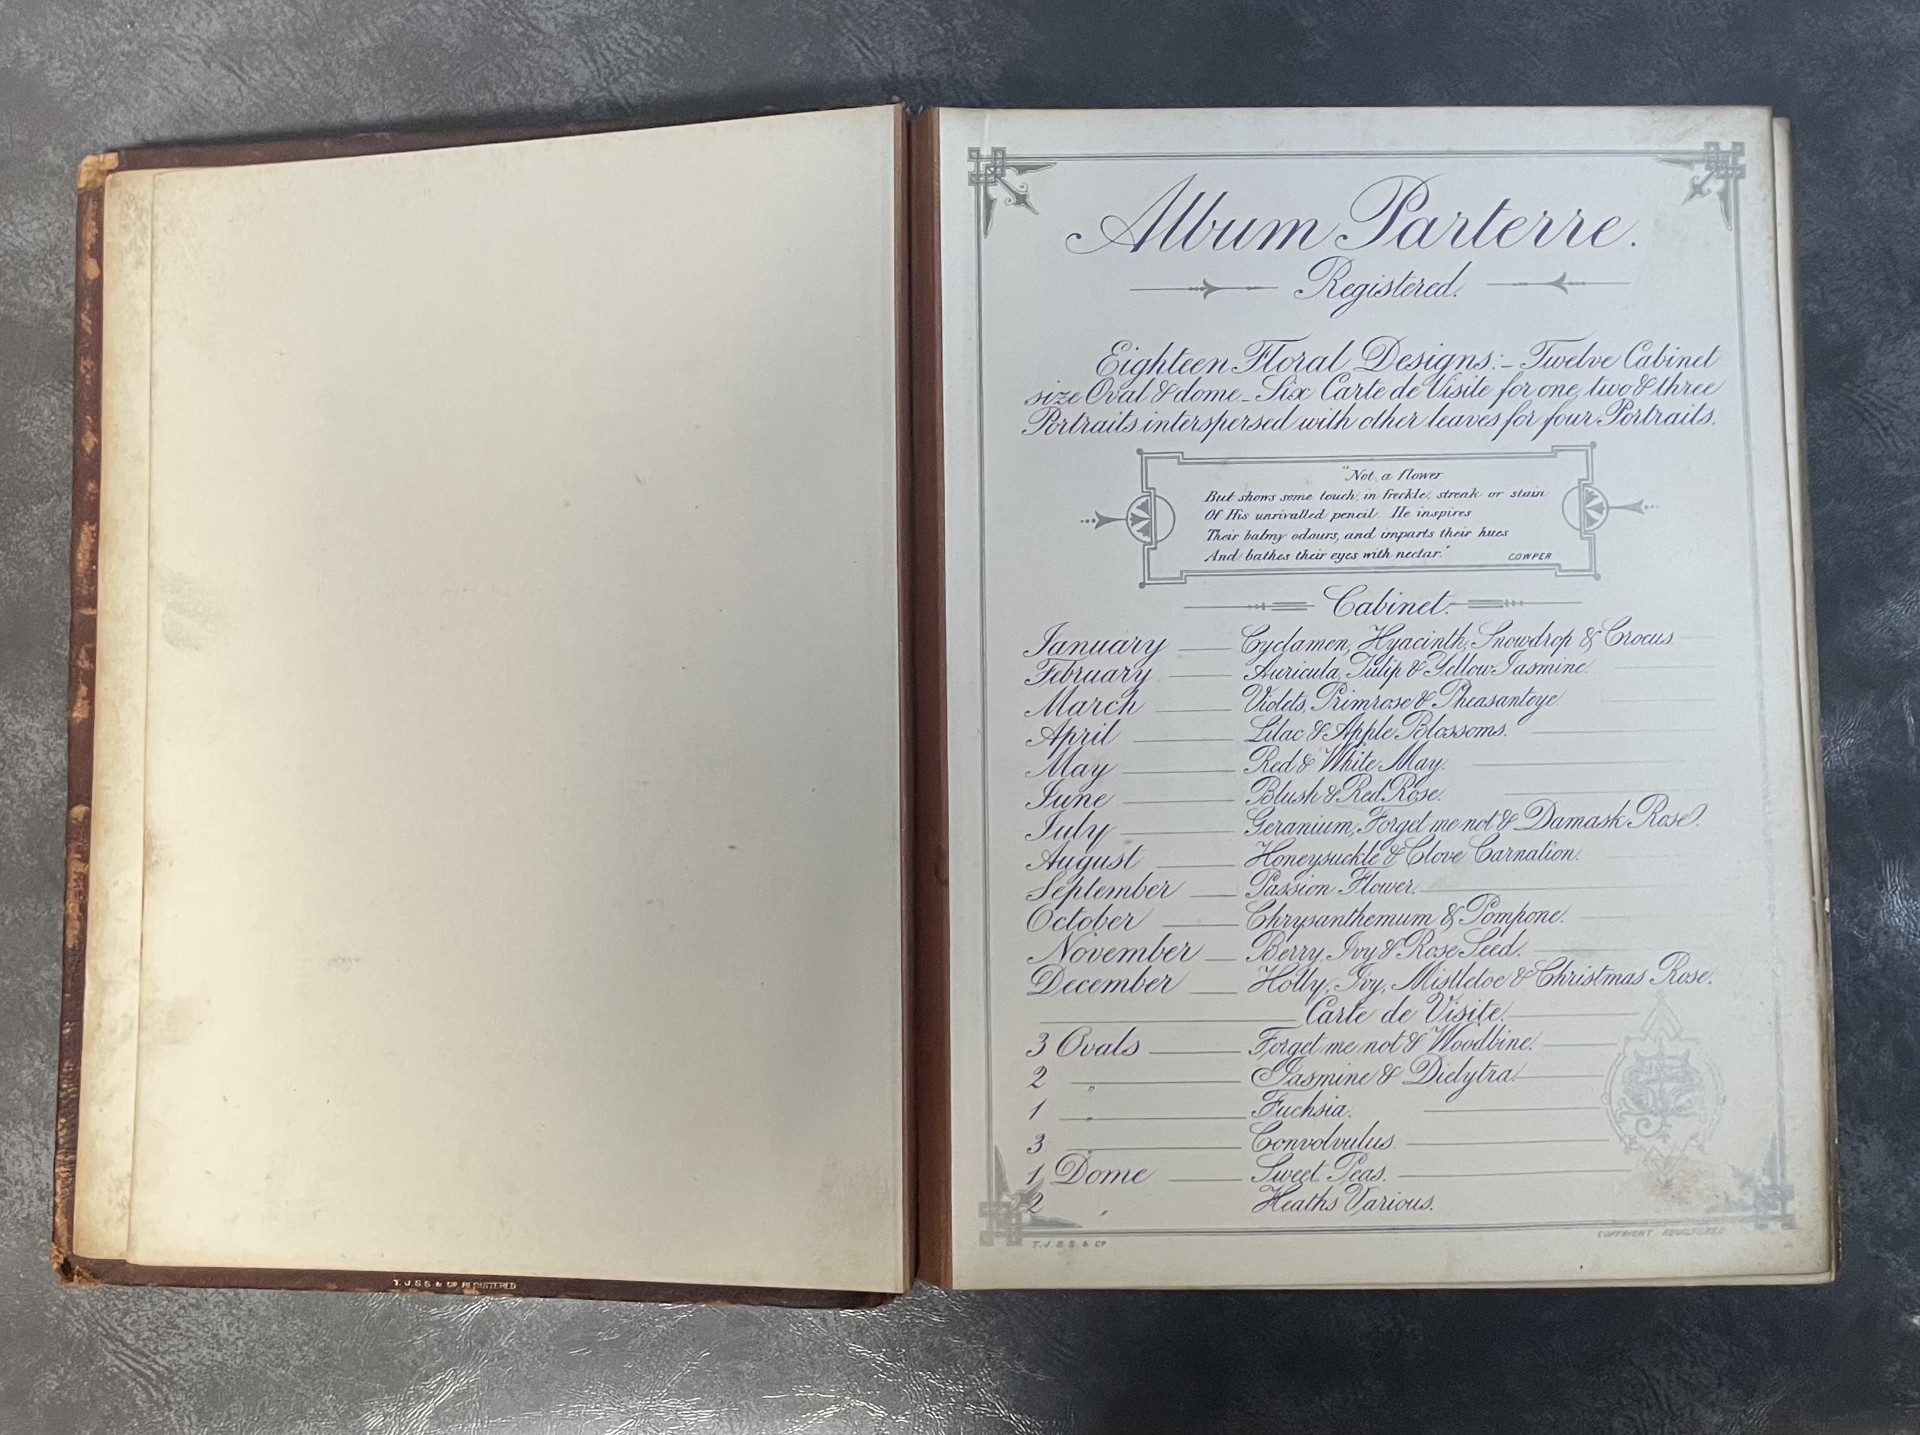 Album Parterre.
Registered.
Eighteen Floral Designs:- Twelve Cabinet
size Oval & dome - Six Carte de Visite for one, two & three
Portraits interspersed with other leaves for four Portraits.
"Not a flower
But shows some touch, in freckle, streak or stain
Of His unrivalled pencil. He inspires
Their balmy odours, and imparts their hues
And bathes their eyes with nectar."
COWPER
Cabinet.
January Cyclamen, Hyacinth, Snowdrop & Crocus.
February Auricula, Tulip & Yellow Jasmine.
March Violets, Primrose & Pheasanteye
April Lilac & Apple Blossoms.
May Red & White May.
June Blush & Red Rose.
July Geranium, Forget me not & Damask Rose.
August Honeysuckle & Clove Carnation.
September Passion Flower.
October Chrysanthemum & Pompone.
November Berry, Ivy & Rose Seed.
December Holly, Ivy, Mistletoe & Christmas Rose.
Carte de Visite.
3 Ovals Forget me not & Woodbine.
2 " Jasmine & Dielytra.
1 " Fuchsia.
3 " Convolvulus.
1 Dome Sweet Peas.
2 " Heaths Various.
T. J. S. S. & Co.
COPYRIGHT REGISTERED
T. J. S. S. & Co. REGISTERED